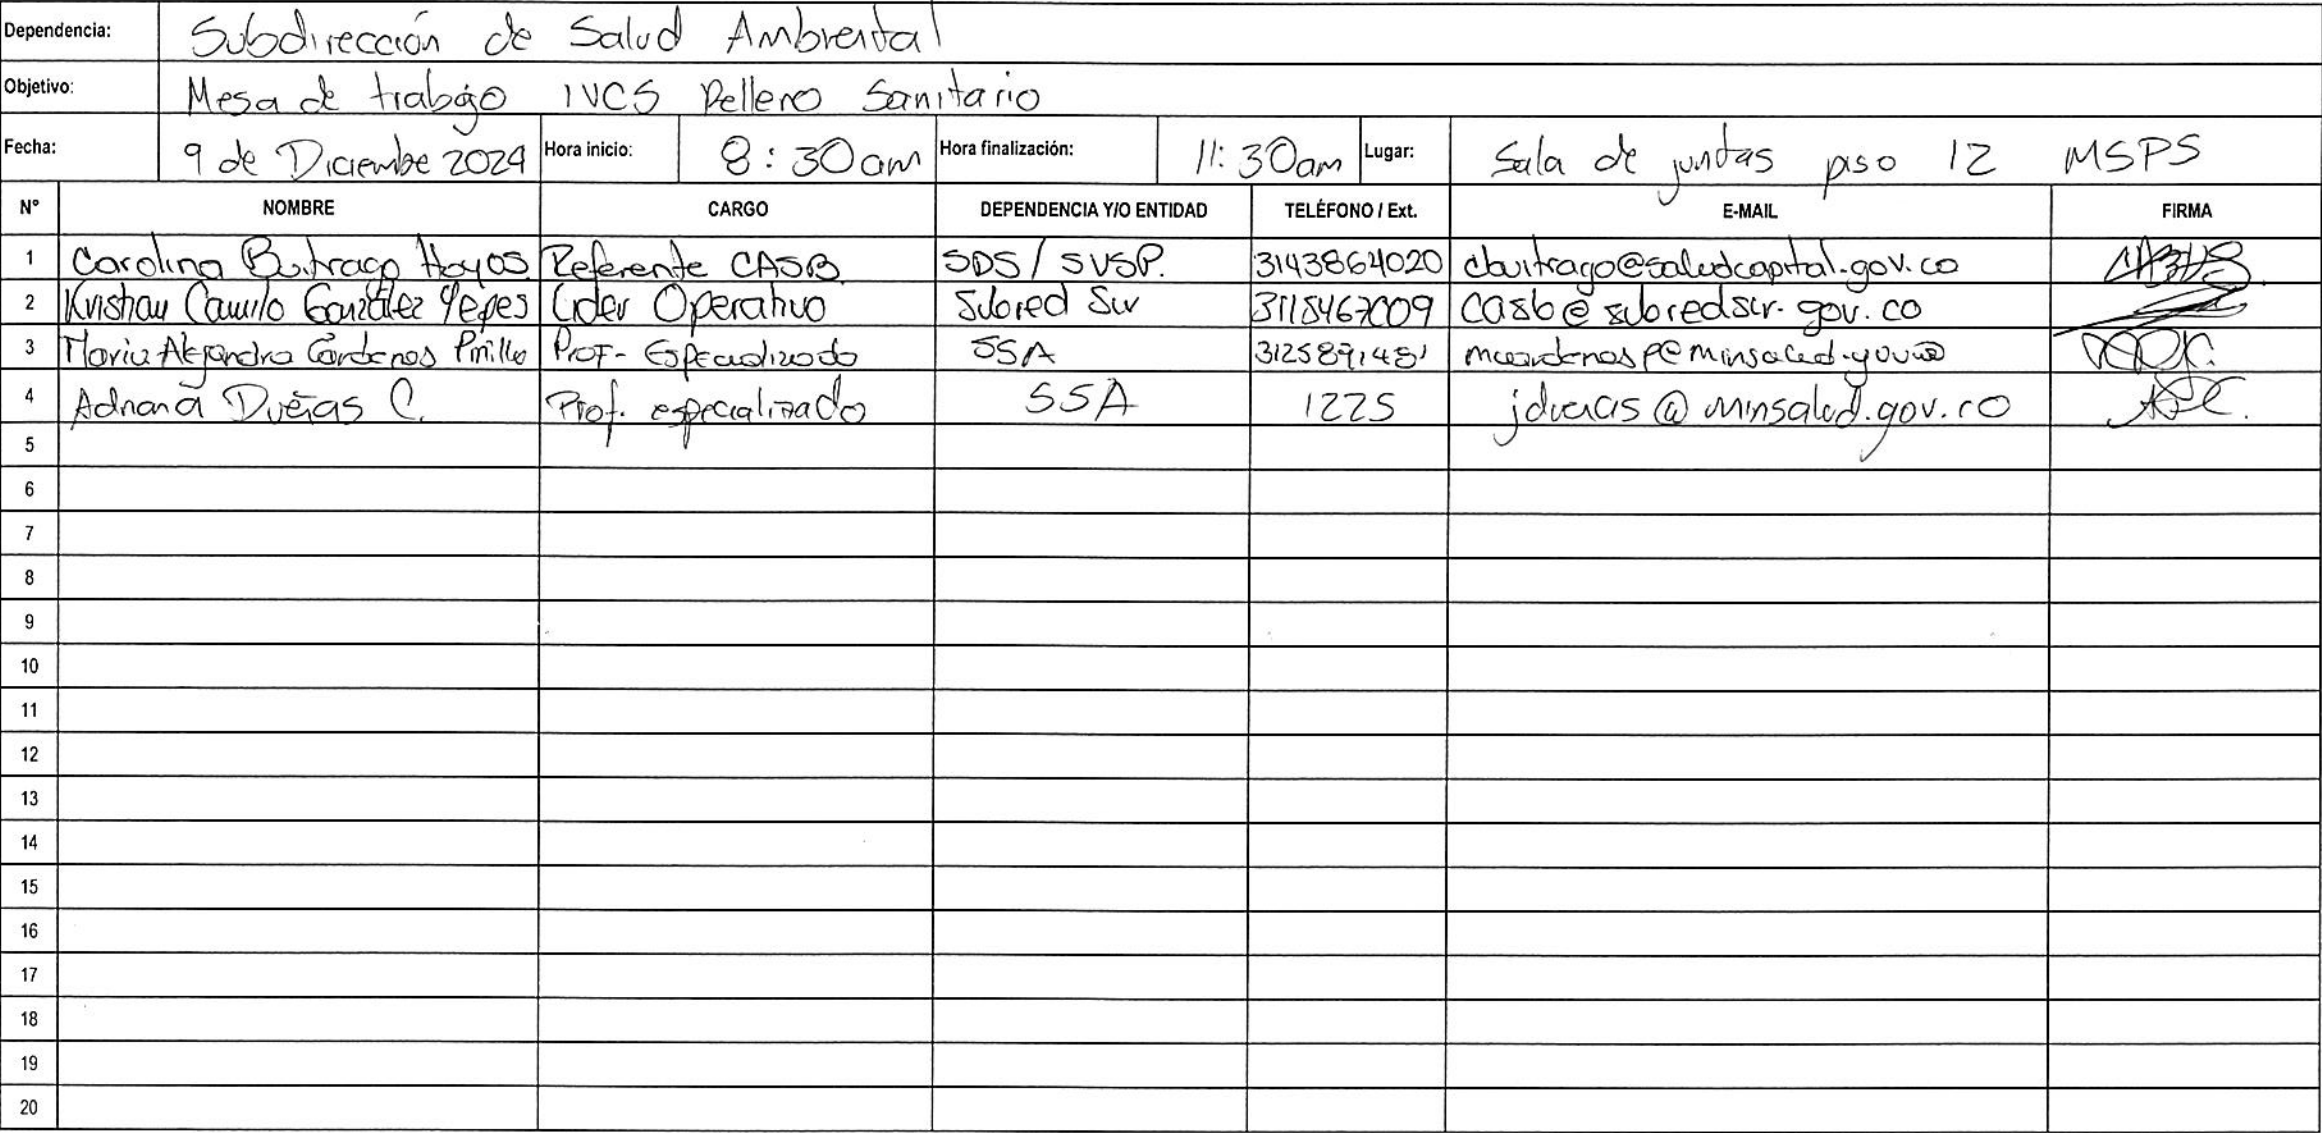 Dependencia: Subdirección de Salud Ambiental
Objetivo: Mesa de trabajo IVCS Relleno Sanitario
Fecha: 9 de Diciembre 2024 Hora inicio: 8:30am Hora finalización: 11:30am Lugar: Sala de juntas piso 12 MSPS
N° NOMBRE CARGO DEPENDENCIA Y/O ENTIDAD TELÉFONO / Ext. E-MAIL FIRMA
1 Carolina Buitrago Hoyos Referente CASB SDS / SVSP. 3143864020 cbuitrago@saludcapital.gov.co
2 Kristian Camilo González Yepes Líder Operativo Subred Sur 3115467009 casb@subredsur.gov.co
3 Maria Alejandra Cárdenas Pinilla Prof- Especializado SSA 3125891481
4 Adriana Dueñas C. Prof. especializado SSA 1225 jduenas@minsalud.gov.co
5
6
7
8
9
10
11
12
13
14
15
16
17
18
19
20